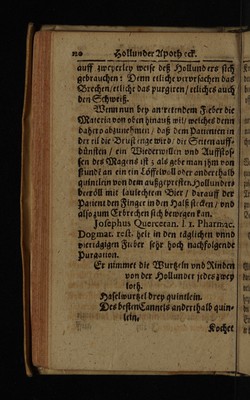 120 Hollunder Apotheck.
auff zweyerley weise deß Hollunders sich
gebrauchen: Denn etliche verursachen das
Brechen/ etliche das purgiren/ etliches auch
den Schweiß.
Wenn nun bey antretendem Fieber die
Materia von oben hinauß wil/ welches denn
daher abzunehmen/ daß dem Patienten in
der eil die Brust enge wird/ die Seiten auff-
dünsten/ ein Wiederwillen und Auffstos-
sen des Magens ist; als gebe man ihm von
stund an ein ein Löffel voll oder anderthalb
quintlein von dem außgepresten Hollunder
beeröll mit laulechtem Bier/ darauff der
Patient den Finger in den Halß stecken/ und
also zum Erbrechen sich bewegen kan.
Josephus Quercetan. l. 1. Pharmac.
Dogmat. rest. helt in den täglichen und
viertägigen Fieber sehr hoch nachfolgende
Purgation.
Er nimmet die Wurtzeln und Rinden
von der Hollunder jedes zwey
loth.
Haselwurtzel drey quintlein.
Des besten Cannels anderthalb quin-
lein.
Kochet